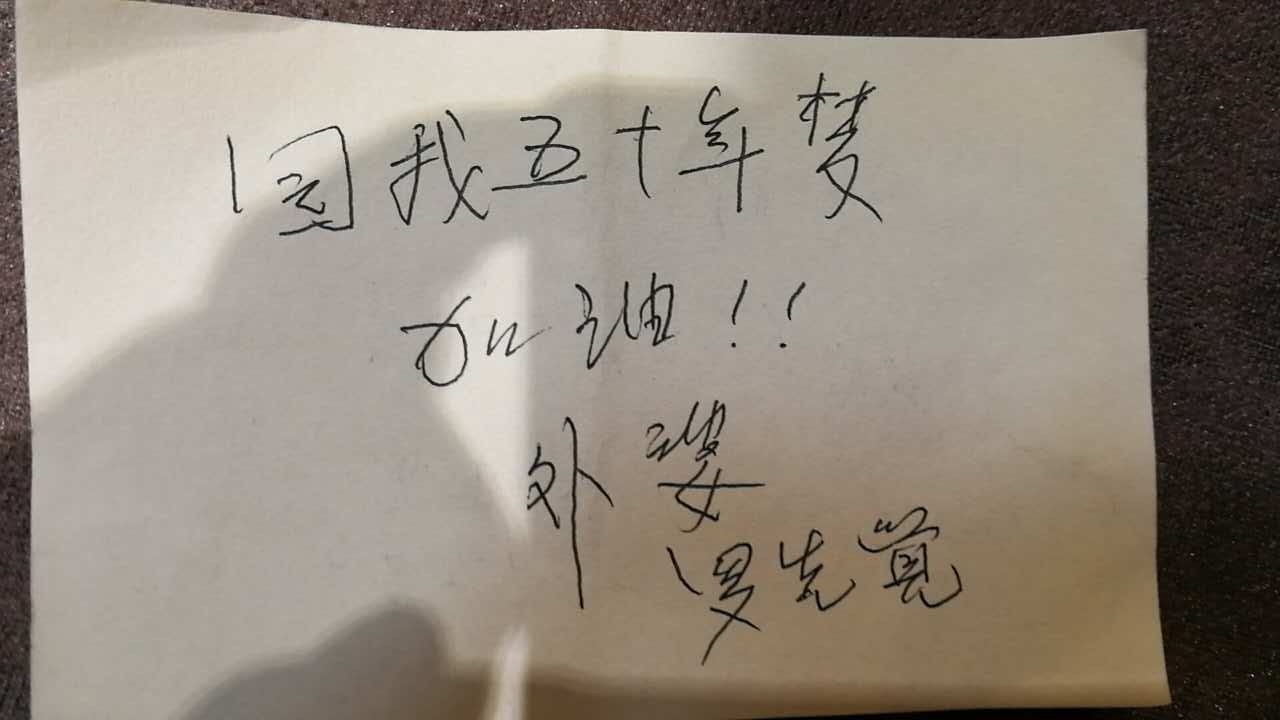 圆我五十年梦
加油!!
外婆
罗先觉